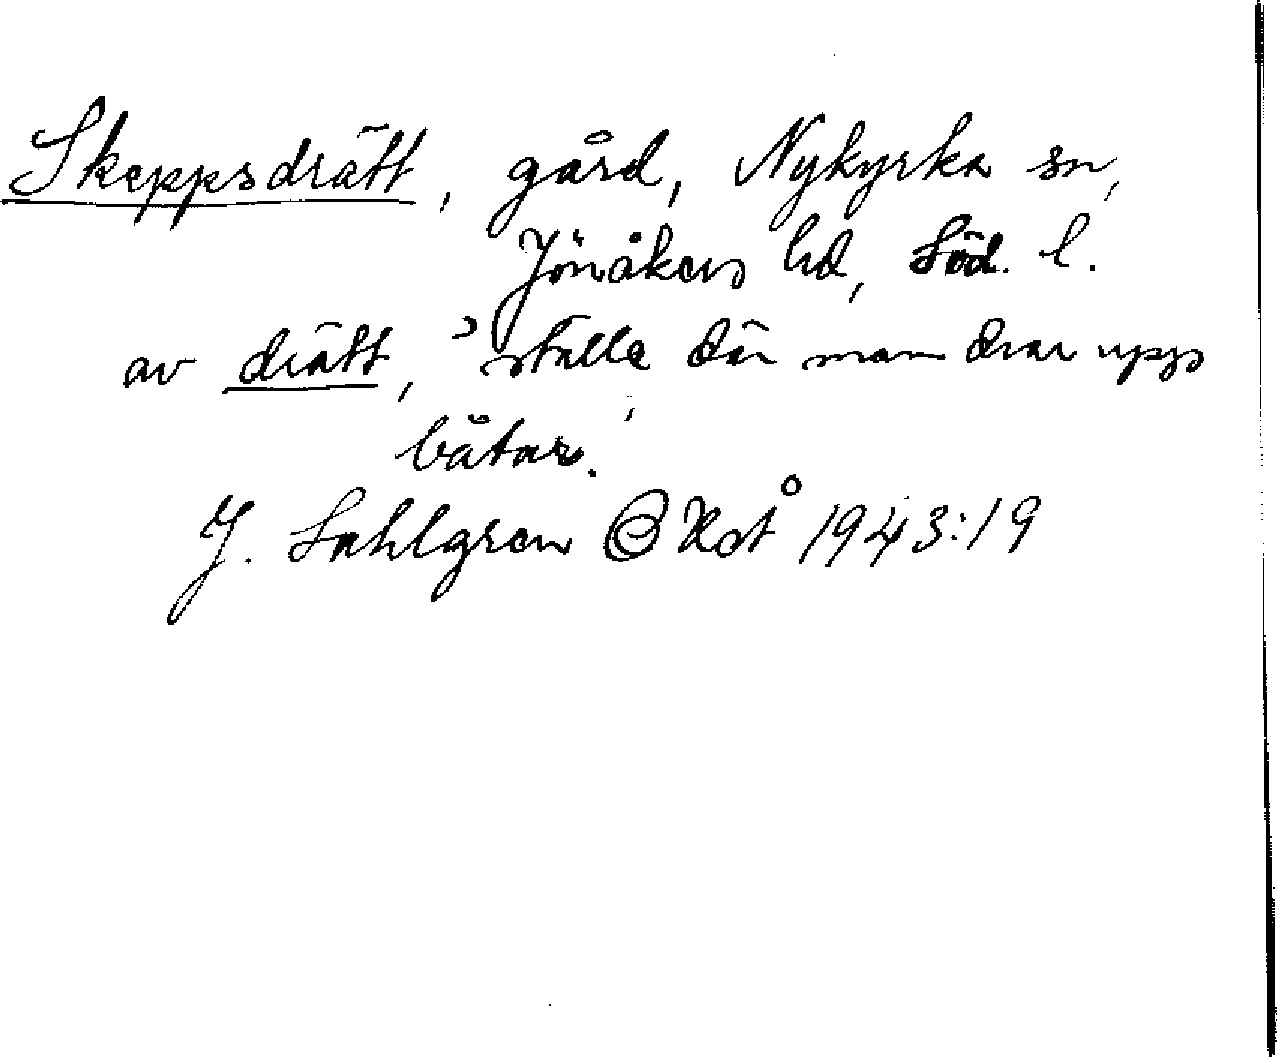 Skeppsdrätt, gård, Nykyrka sn,
Jönåkers hd, Söd. l.
av drätt, 'ställe där man drar upp
båtar.'
J. Sahlgren 1943:19